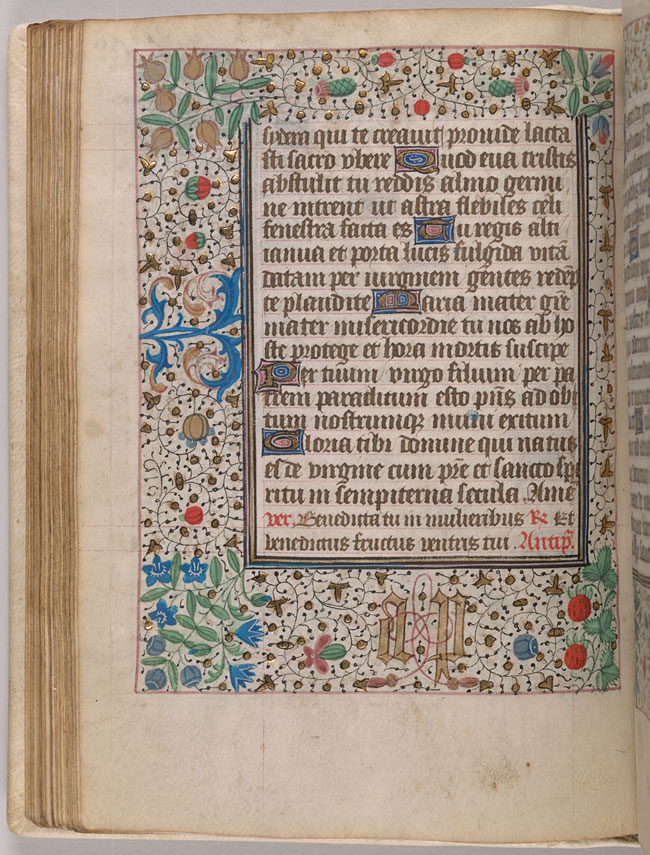 sydera qui te creauit prouide lacta
sti sacro vbere Quod eua tristis
abstulit tu reddis almo germi
ne intrent ut astra flebiles celi
fenestra facta es Tu regis alti
ianua et porta lucis fulgida vitā
datam per uirginem gentes redēp
te plaudite Maria mater gr̄e
mater misericordie tu nos ab ho
ste protege et hora mortis suscipe
Per tuum virgo filium per pa
trem paraclitum esto pn̄s ad obi
tum nostrumq̄ muni exitum
Gloria tibi domine qui natus
es de virgine cum pr̄e et sancto spi
ritu in sempiterna secula. Ame
ver. Benedicta tu in mulieribus ℞ Et
benedictus fructus ventris tui. Antip̄.